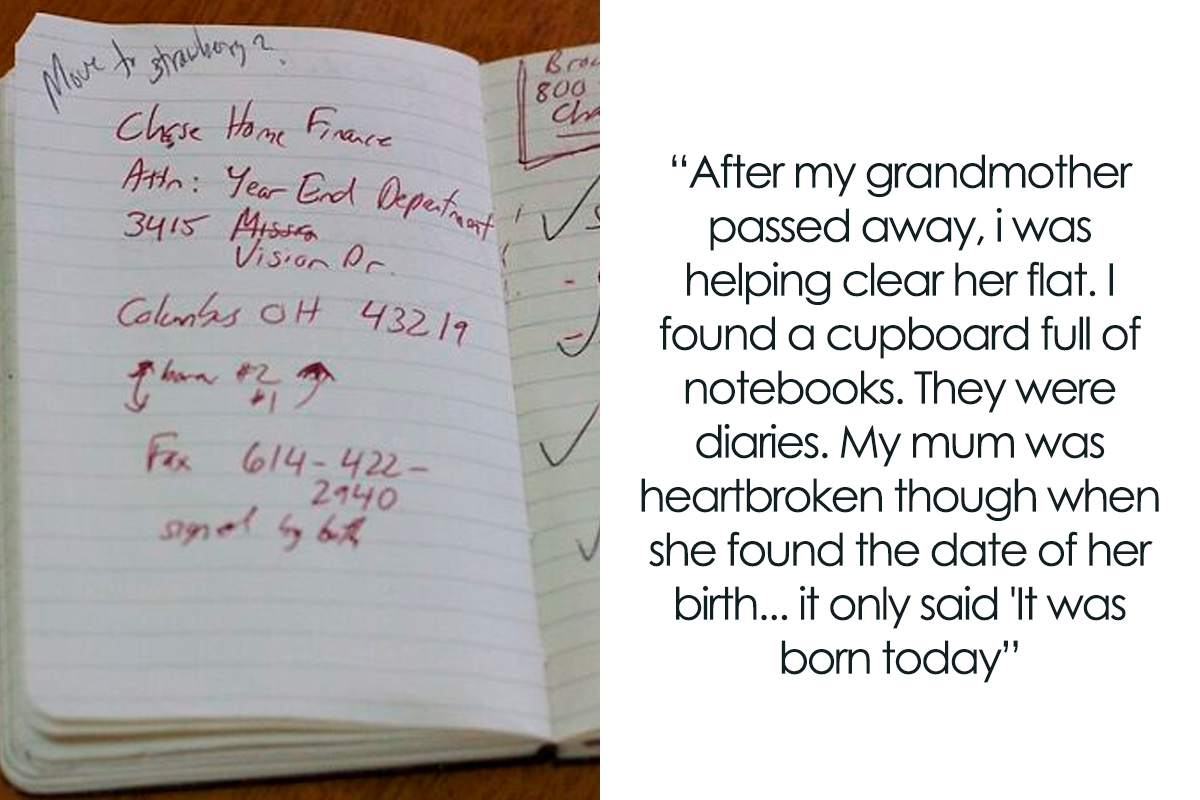 Move to strawberry?
Chase Home Finance
Attn: Year End Department
3415 Missin
Vision Dr.
Columbus OH 43219
#2
#1
Fax 614-422-
2940
signed by both
800
“After my grandmother
passed away, i was
helping clear her flat. I
found a cupboard full of
notebooks. They were
diaries. My mum was
heartbroken though when
she found the date of her
birth... it only said 'It was
born today”